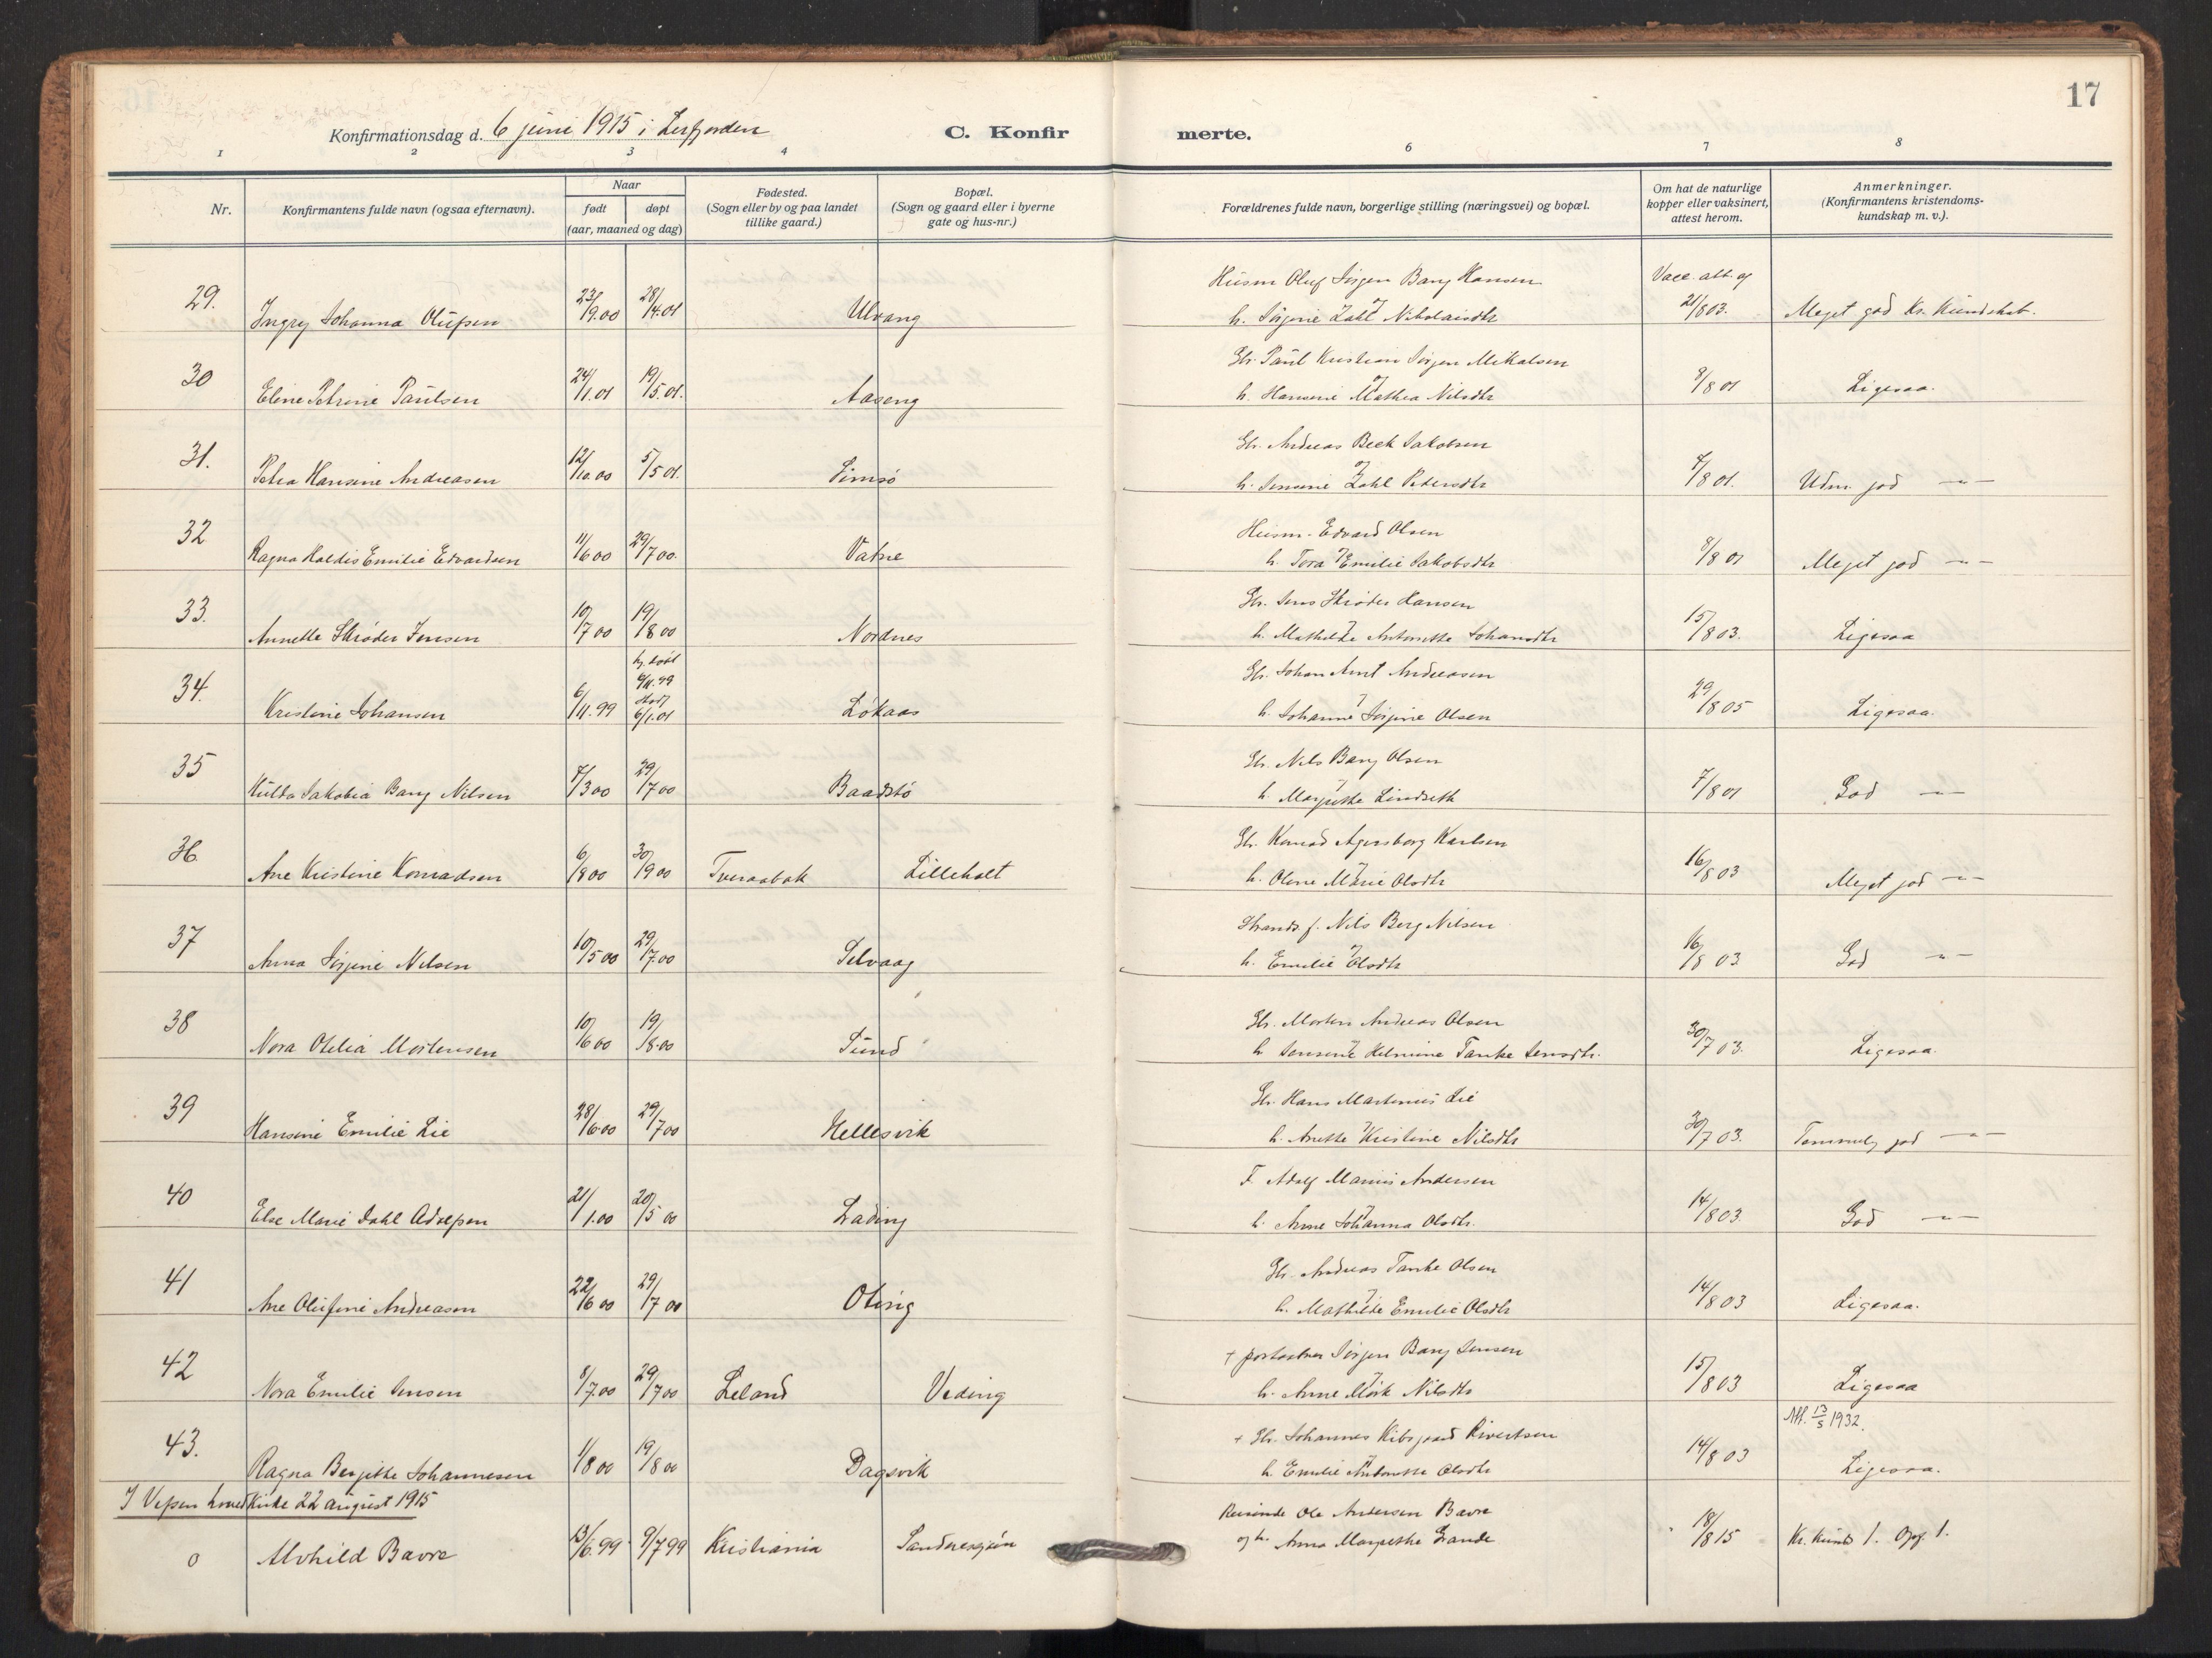 17
Konfirmationsdag d. 6 juni 1915 i Leirfjorden
C. Konfirmerte.
1 2 3 4 6 7 8
Nr.
Konfirmantens fulde navn (ogsaa efternavn).
Naar
født
døpt
(aar, maaned og dag)
Fødested.
(Sogn eller by og paa landet
tillike gaard.)
Bopæl.
(Sogn og gaard eller i byerne
gate og hus-nr.)
Forældrenes fulde navn, borgerlige stilling (næringsvei) og bopæl.
Om hat de naturlige
kopper eller vaksinert,
attest herom.
Anmerkninger.
(Konfirmantens kristendoms-
kundskap m. v.).
Husm Oluf Jørgen Bang Hansen Vacc. att. af
29. Ingry Johanna Olufsen 23/9.00 28/4.01 Ulvang h. Jørgine Zahl Nikolaisdtr 21/8 03. Meget god Kr. Kundskab.
Gbr. Paul Kristian Jørgen Mikalsen
30 Eline Petrine Paulsen 24/1.01 19/5.01. Aaseng h. Hansine Mathea Nilsdtr 8/8 01 Ligesaa.
Gbr. Andreas Beck Jakobsen
31. Petra Hansine Andreasen 12/10.00 5/5 01. Simsø h. Jensine Zahl Pedersdtr 7/8 01. Udm. god —"—
Husm. Edvard Olsen
32 Ragna Haldis Emilie Edvardsen 11/6 00 29/7 00. Vatne h. Tora Emilie Jakobsdtr 8/8 01 Meget god —"—
Gbr. Jens Skrøder Hansen
33. Annette Skrøder Jensen 10/7 00 19/8 00 Nordnes h. Mathilde Antonette Johansdtr 15/8 03. Ligesaa
hj. døbt
Gbr. Johan Arnt Andreasen
34. Kristine Johansen 6/11.99 6/1.01 Løkaas h. Johanne Jørgine Olsen 29/8 05 Ligesaa.
Gbr. Nils Bang Olsen
35 Hulda Jakobia Bang Nilsen 7/3 00 29/7 00 Baadstø h. Margrethe Lindseth 7/8 01 God —"—
Gbr. Konrad Agersborg Karlsen
36. Ane Kristine Konradsen 6/8 00 30/9 00 Tveraabak Lilleholt h. Oline Marie Olsdtr 16/8 03 Meget god —"—
Strands. f. Nils Berg Nilsen
37 Anna Jørgine Nilsen 10/5 00 29/7.00 Selvaag h. Emilie Olsdtr 16/8 03 God —"—
Gbr. Morten Andreas Olsen
38 Nora Otelia Mortensen 10/6 00 19/8.00 Sund h. Jensine Helmine Tanke Jensdtr. 30/7 03. Ligesaa.
Gbr. Hans Martinius Lie
39 Hansine Emilie Lie 28/6.00 29/7 00 Hellesvik h. Anette Kristine Nilsdtr 30/7 03. Temmelig god —"—
F. Adolf Marius Andersen
40 Else Marie Dahl Adolfsen 21/1.00 20/5 00 Lading h. Anne Johanna Olsdtr. 14/8 03. God —"—
Gbr. Andreas Tanke Olsen
41 Ane Olufine Andreasen 22/6 00 29/7 00 Oting h. Mathilde Emilie Olsdtr 14/8 03 Ligesaa.
+ postaabner Jørgen Bang Jensen
42 Nora Emilie Jensen 8/7.00 29/7 00 Leland Veding h. Anne Mørk Nilsdtr 15/8 03 Ligesaa
Att. 13/5 1932.
+ Gbr. Johannes Kibsgaard Sivertsen
43. Ragna Bergitte Johannesen 1/8 00 19/8 00 Dagsvik h. Emilie Antonette Olsdtr 14/8 03 Ligesaa.
I Vefsen hovedkirke 22 august 1915
Reisende Ole Andersen Bavre
0 Alvhild Bavre 13/6.99 9/7 99 Kristiania Sandnessjøen og h. Anna Margrethe Grande 18/8 15 Kr. kunds 1. Opf. 1.